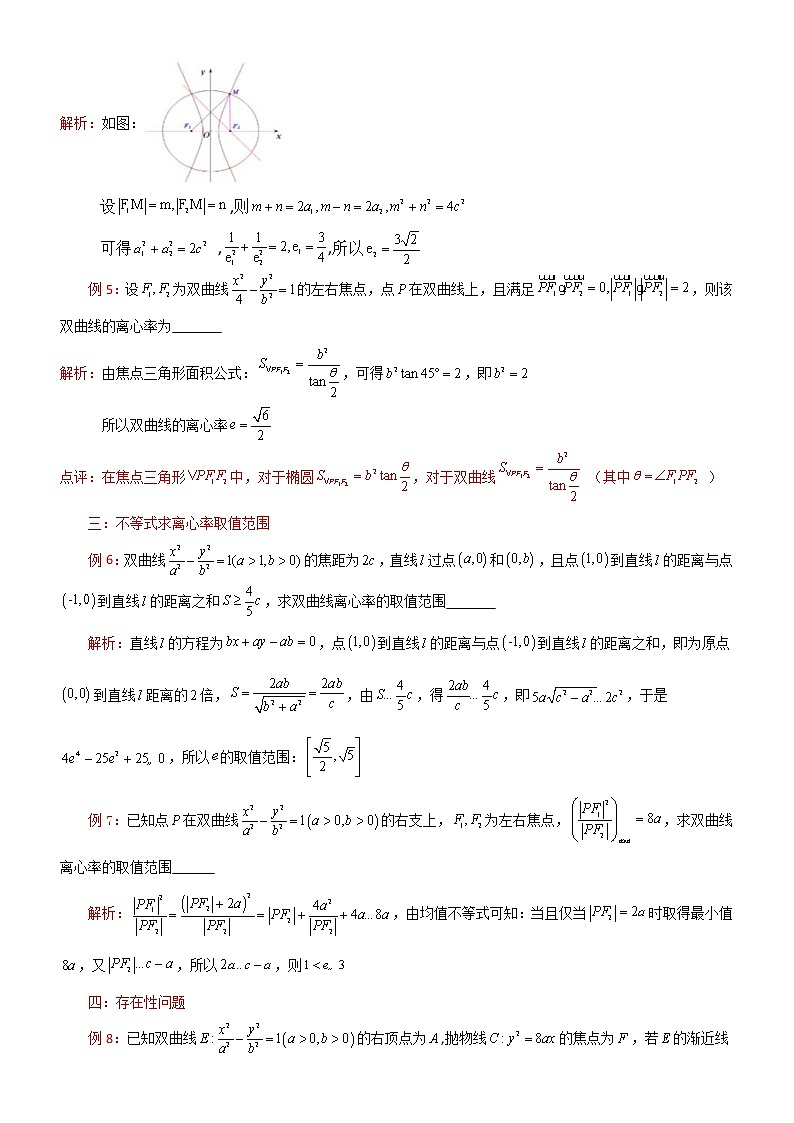 y
M
F₁ O F₂ x
解析：如图：
设|F₁M| = m, |F₂M| = n ,则 m + n = 2a₁, m − n = 2a₂, m² + n² = 4c²
可得 a₁² + a₂² = 2c² , 1/e₁² + 1/e₂² = 2, e₁ = 3/4 ,所以 e₂ = 3√2/2
例 5：设 F₁, F₂ 为双曲线 x²/4 − y²/b² = 1 的左右焦点，点 P 在双曲线上，且满足 PF₁ g PF₂ = 0, |PF₁| g |PF₂| = 2 ，则该
双曲线的离心率为_______
解析：由焦点三角形面积公式： S_{VPF₁F₂} = b²/tan(θ/2) ，可得 b² tan 45° = 2 ，即 b² = 2
所以双曲线的离心率 e = √6/2
点评：在焦点三角形 VPF₁F₂ 中，对于椭圆 S_{VPF₁F₂} = b² tan θ/2 ，对于双曲线 S_{VPF₁F₂} = b²/tan(θ/2) （其中 θ = ∠F₁PF₂ ）
三：不等式求离心率取值范围
例 6：双曲线 x²/a² − y²/b² = 1(a > 1, b > 0) 的焦距为 2c ，直线 l 过点 (a,0) 和 (0,b) ，且点 (1,0) 到直线 l 的距离与点
(-1,0) 到直线 l 的距离之和 S ≥ 4/5 c ，求双曲线离心率的取值范围_______
解析：直线 l 的方程为 bx + ay − ab = 0 ，点 (1,0) 到直线 l 的距离与点 (-1,0) 到直线 l 的距离之和，即为原点
(0,0) 到直线 l 距离的 2 倍， S = 2ab/√(b² + a²) = 2ab/c ，由 S... 4/5 c ，得 2ab/c ... 4/5 c ，即 5a√(c² − a²)... 2c² ，于是
4e⁴ − 25e² + 25,, 0 ，所以 e 的取值范围: [√5/2, √5]
例 7：已知点 P 在双曲线 x²/a² − y²/b² = 1(a > 0, b > 0) 的右支上， F₁, F₂ 为左右焦点， (|PF₁|²/|PF₂|)_{min} = 8a ，求双曲线
离心率的取值范围______
解析： |PF₁|²/|PF₂| = (|PF₂| + 2a)²/|PF₂| = |PF₂| + 4a²/|PF₂| + 4a...8a ，由均值不等式可知：当且仅当 |PF₂| = 2a 时取得最小值
8a ，又 |PF₂|...c − a ，所以 2a...c − a ，则 1 < e,, 3
四：存在性问题
例 8：已知双曲线 E : x²/a² − y²/b² = 1(a > 0, b > 0) 的右顶点为 A ,抛物线 C : y² = 8ax 的焦点为 F ，若 E 的渐近线